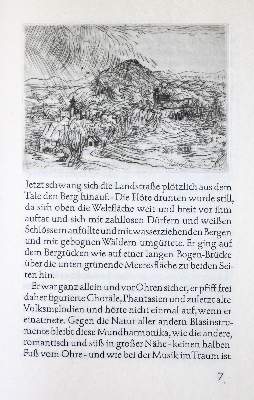 Jetzt schwang sich die Landstraße plötzlich aus dem
Tale den Berg hinauf. - Die Flöte drunten wurde still,
da sich oben die Weltfläche weit und breit vor ihm
auftat und sich mit zahllosen Dörfern und weißen
Schlössern anfüllte und mit wasserziehenden Bergen
und mit gebognen Wäldern umgürtete. Er ging auf
dem Bergrücken wie auf einer langen Bogen-Brücke
über die unten grünende Meeresfläche zu beiden Sei-
ten hin.
Er war ganz allein und vor Ohren sicher, er pfiff frei
daher figurierte Choräle, Phantasien und zuletzt alte
Volksmelodien und hörte nicht einmal auf, wenn er
einatmete. Gegen die Natur aller andern Blasinstru-
mente bleibt diese Mundharmonika, wie die andere,
romantisch und süß in großer Nähe - keinen halben
Fuß vom Ohre - und wie bei der Musik im Traum ist
7